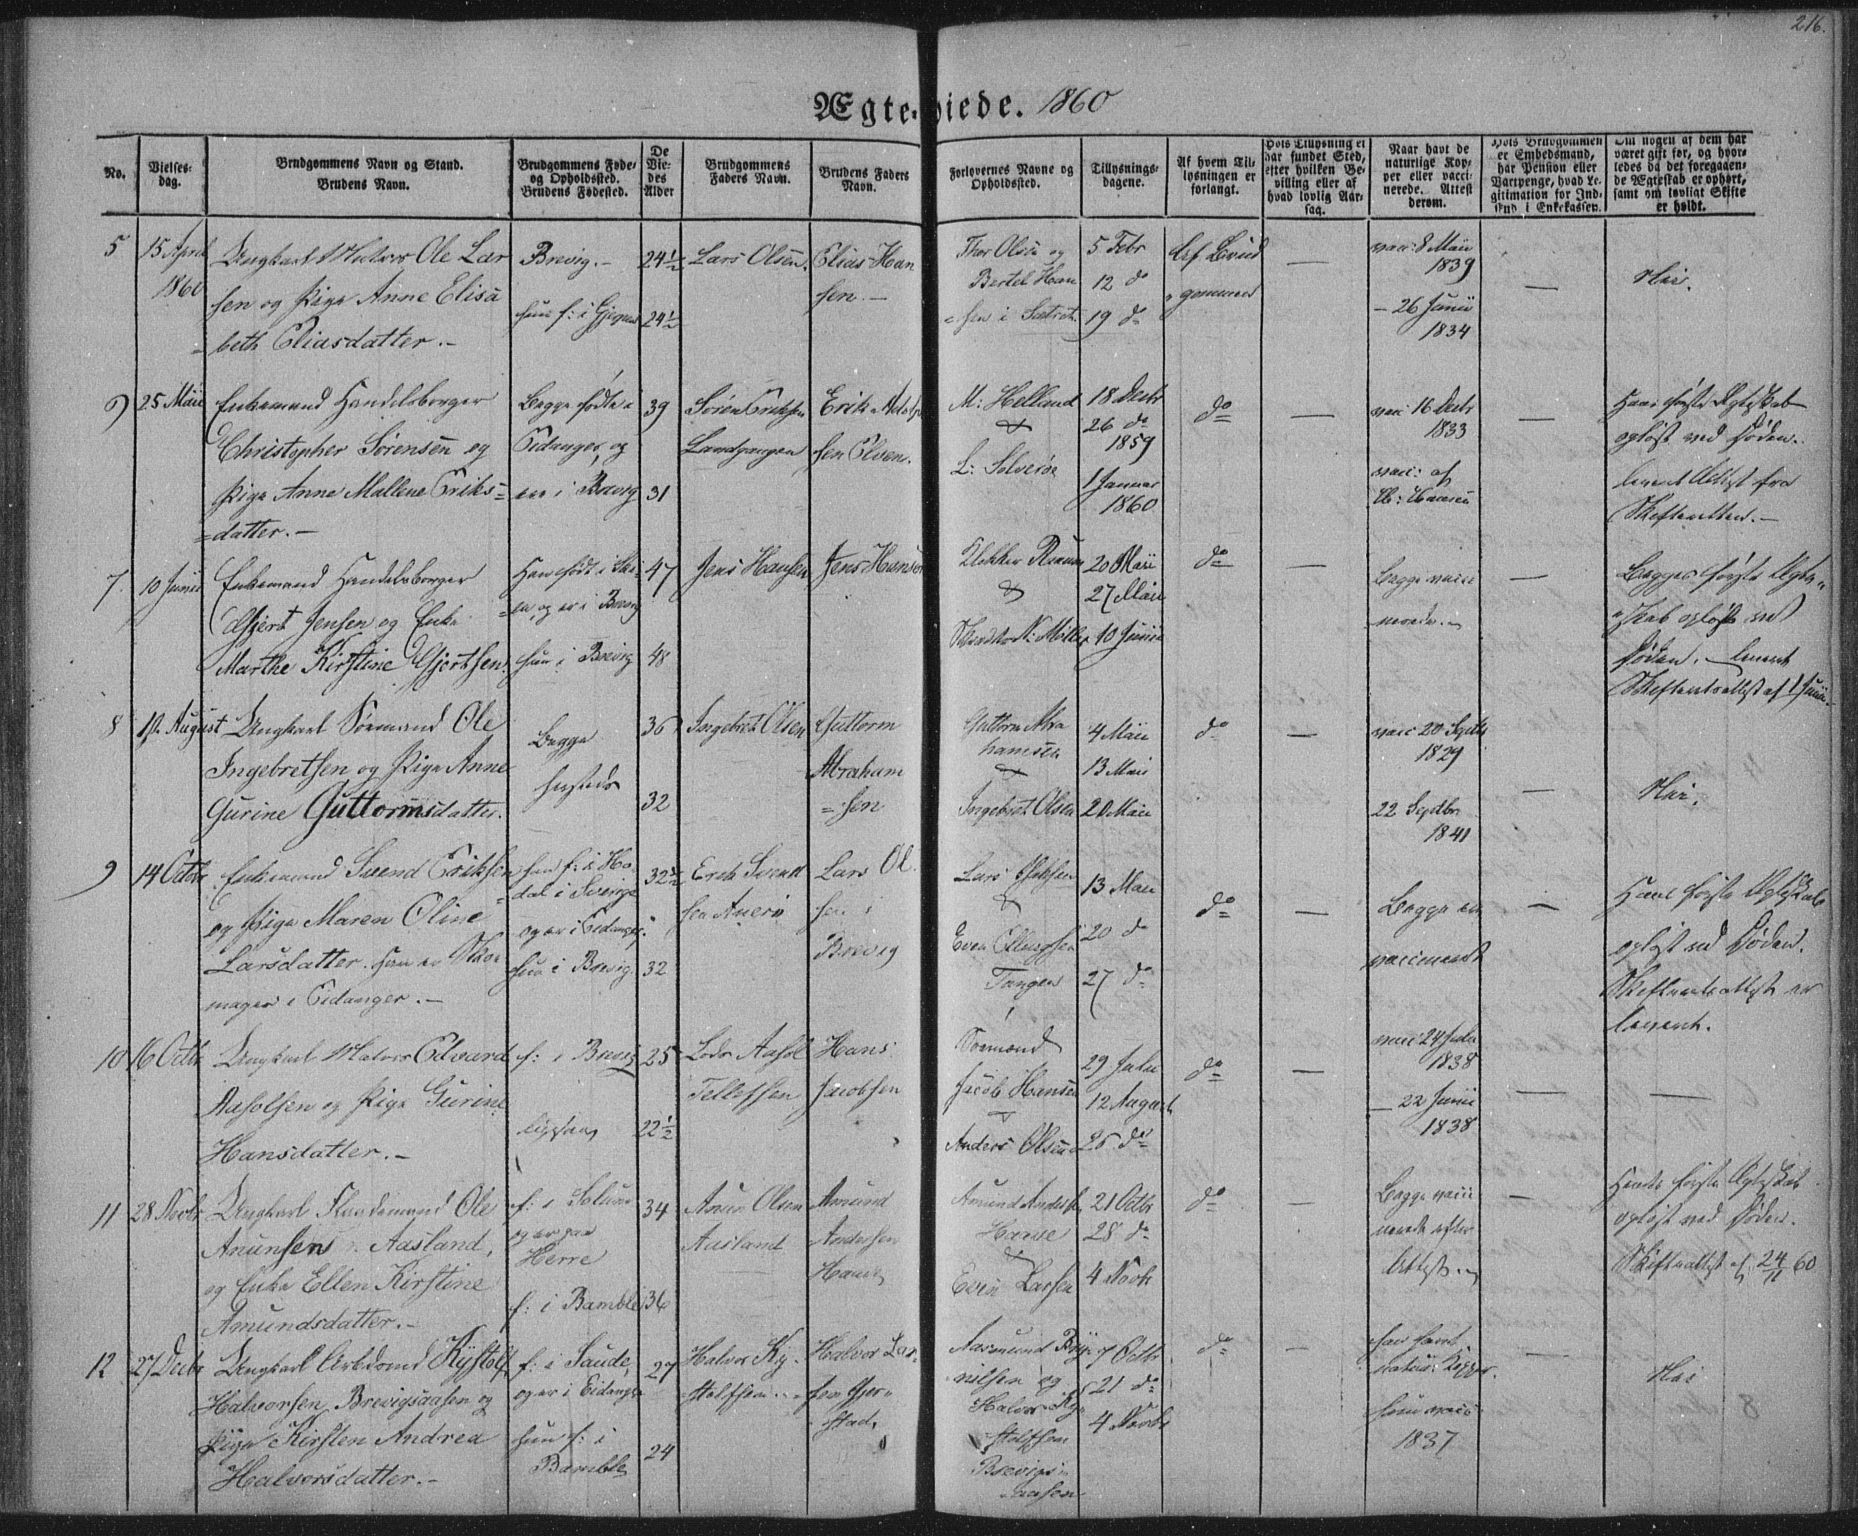 216.
Ægteviede. 1860
No.
Vielses-
dag.
Brudgommens Navn og Stand.
Brudens Navn.
Brudgommens Føde-
og Opholdssted.
Brudens Fødested.
De
Vie-
des
Alder
Brudgommens
Faders Navn.
Brudens Faders
Navn.
Forlovernes Navne og
Opholdssted.
Tillysnings-
dagene.
Af hvem Til-
lysningen er
forlangt.
Hvis Tillysning ei
har fundet Sted,
efter hvilken Be-
villing eller af
hvad lovlig Aar-
sag.
Naar havt de
naturlige Kop-
per eller vacci-
nerede. Attest
derom.
Hvis Brudgommen
er Embedsmand,
har Pension eller
Vartpenge, hvad Le-
gitimation for Ind-
skud i Enkekassen.
Om nogen af dem har
været gift før, og hvor-
ledes da det foregaaen-
de Ægteskab er ophørt,
samt om lovligt Skifte
er holdt.
5
15 April
1860
Ungkarl Matros Ole Lar
sen og Pige Anne Elisa
beth Eliasdatter.-
Brevig.-
hun f: i
24½
24½
Lars Olsen.
Elias Han
sen.-
Thor Olsen og
Bertel Han
sen i
5 Febr
12 do
19 do
Af Brud
gommen
vacc: 8 Maii
1839
- 26 Junii
1834
Nei.
6
25 Maii
Enkemand Handelsborger
Christopher Sørensen og
Pige Anne Mallene Eriks=
=datter.-
Begge fødte i
Eidanger, og
ere i Brevig
39
31
Søren Eriksen
Landgangen
Erik
sen Olsen.
M: Helland
&
L:
18 Decbr
26 do
1859
1 Januar
1860
do
vacc: 16 Decbr
1833
vacc: af
Hans første Ægteskab
opløst ved Døden.
leveret Attest fra
Skifteretten.-
7.
10 Junii
Enkemand Handelsborger
Gjert Jensen og Enke
Marthe Kirstine Gjertsen.
Han født i Ski-
en, og er i Brevig
hun i Brevig
47
48
Jens Hansen
Jens Hansen
Klokker
&
N: Møller
20 Maii
27 Maii
10 Junii
do
Begge vacci
nerede.-
Begges første Ægte
skab opløst ved
Døden.- leveret
Skifteretsattest af 1 Junii.
8
August
Ungkarl Sømand Ole
Ingebretsen og Pige Anne
Gurine Guttormsdatter.
Begge
36
32
Ingebret Olsen
Guttorm
Abraham
=sen
Guttorm Abra
hamsen
&
Ingebret Olsen
4 Maii
13 Maii
20 Maii
do
vacc: 20 Septbr
1829
22 Septbr
1841
Nei.
9
14 Octbr
Enkemand Svend Eriksen
og Pige Maren Oline
Larsdatter. Han er Skoe
mager i Eidanger.-
han f: i
dal i Sverige
og er i Eidanger.
hun i Brevig.
32½
32
Erik Svend
sen
Lars Ol
sen i
Brevig
Lars
&
Even
Tangen
13 Maii
20 do
27 do
do
Begge ere
vaccinerede
Hans første Ægteskab
opløst ved Døden.
Skifteretsattest er
leveret.
10
16 Octbr
Ungkarl Matros Edvard
Aasolsen og Pige Gurine
Hansdatter.-
f: i Brevig
ligesaa
25
22½
Aasol
Tellefsen
Hans
Jacobsen
Sømand
Jacob Hansen
Anders Olsen
29 Julii
12 August
25 do
do
vacc: 24 Julii
1838
- 22 Junii
1838
11
28 Novbr
Ungkarl Ole
Anunsen Aasland,
og Enke Ellen Kirstine
Amundsdatter.-
f: i Solum
og er paa
Herre
f: i Bamble
34
36
Anun Olsen
Aasland
Amund
Andersen
Amund Anders
&
Even Larsen
21 Octbr
28 do
4 Novbr
do
Begge vacci
nerede efter
Attest.
Hendes første Ægteskab
opløst ved Døden.
Skifteattest af 24/11 60
12
27 Decbr
Ungkarl Arbdsmd Kystolf
Halvorsen Brevigsaasen og
Pige Kirsten Andrea
Halvorsdatter.-
f: i Saude,
og er i Eidanger
hun f: i
Bamble
27
24
Halvor Ky-
stolfsen
Halvor Lar-
sen Gjer-
stad,
Aasmund
nilsen og
Halvor Ky
stolfsen
Brevigs-
aasen
7 Octbr
21 do
4 Novbr
do
han havt
natur: Kopper.
hun vacc:
1837
Nei